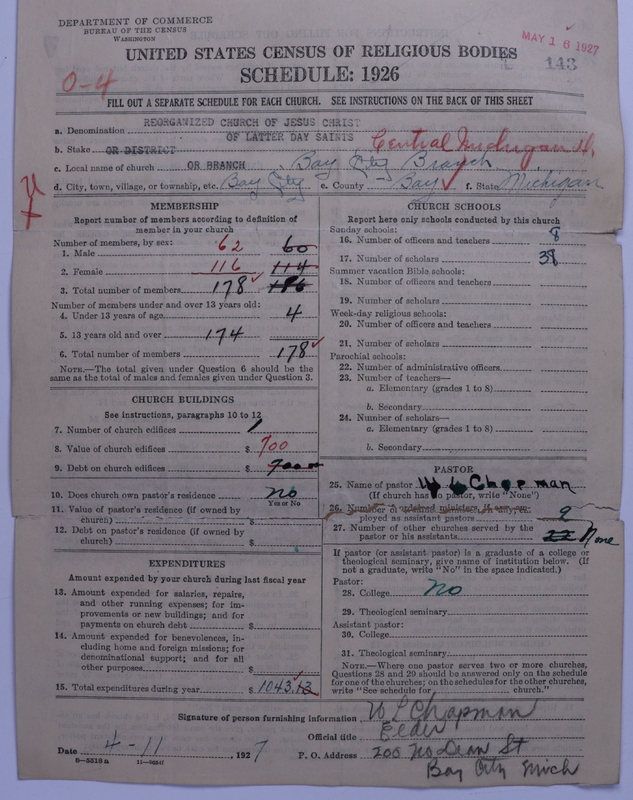 DEPARTMENT OF COMMERCE
BUREAU OF THE CENSUS
WASHINGTON
MAY 16 1927
143
UNITED STATES CENSUS OF RELIGIOUS BODIES
SCHEDULE: 1926
0-4
FILL OUT A SEPARATE SCHEDULE FOR EACH CHURCH. SEE INSTRUCTIONS ON THE BACK OF THIS SHEET
a. Denomination REORGANIZED CHURCH OF JESUS CHRIST
OF LATTER DAY SAINTS
b. Stake OR DISTRICT Central Michigan
c. Local name of church OR BRANCH Bay City Branch
d. City, town, village, or township, etc. Bay City e. County Bay f. State Michigan
MEMBERSHIP
Report number of members according to definition of
member in your church
Number of members, by sex:
1. Male 62 60
2. Female 116 114
3. Total number of members 178
Number of members under and over 13 years old:
4. Under 13 years of age 4
5. 13 years old and over 174
6. Total number of members 178
NOTE.—The total given under Question 6 should be
same as the total of males and females given under Question 3.
CHURCH BUILDINGS
See instructions, paragraphs 10 to 12
7. Number of church edifices 1
8. Value of church edifices $ 700
9. Debt on church edifices $
10. Does church own pastor's residence no
Yes or No
11. Value of pastor's residence (if owned by
church) $
12. Debt on pastor's residence (if owned by
church) $
EXPENDITURES
Amount expended by your church during last fiscal year
13. Amount expended for salaries, repairs,
and other running expenses; for im-
provements or new buildings; and for
payments on church debt $
14. Amount expended for benevolences, in-
cluding home and foreign missions; for
denominational support; and for all
other purposes $
15. Total expenditures during year $ 1043.12
CHURCH SCHOOLS
Report here only schools conducted by this church
Sunday schools:
16. Number of officers and teachers 8
17. Number of scholars 38
Summer vacation Bible schools:
18. Number of officers and teachers
19. Number of scholars
Week-day religious schools:
20. Number of officers and teachers
21. Number of scholars
Parochial schools:
22. Number of administrative officers
23. Number of teachers—
a. Elementary (grades 1 to 8)
b. Secondary
24. Number of scholars—
a. Elementary (grades 1 to 8)
b. Secondary
PASTOR
25. Name of pastor W L Chapman
(If church has no pastor, write "None")
26. Number
ployed as assistant pastors
27. Number of other churches served by the
pastor or his assistants None
If pastor (or assistant pastor) is a graduate of a college or
theological seminary, give name of institution below. (If
not a graduate, write "No" in the space indicated.)
Pastor:
28. College No
29. Theological seminary
Assistant pastor:
30. College
31. Theological seminary
NOTE.—Where one pastor serves two or more churches,
Questions 28 and 29 should be answered only on the schedule
for one of the churches; on the schedules for the other churches,
write "See schedule for church."
Signature of person furnishing information W L Chapman
Official title Elder
Date 4-11, 1927 P. O. Address 200 No Dean St
6-5518a 11-9664f Bay City Mich